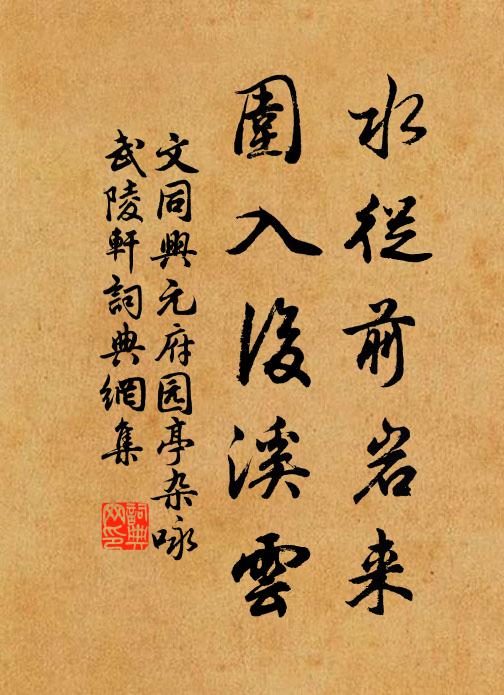 水從前岩来
圍入後溪雲
文同興元府园亭杂咏
武陵軒詞典網集
詞典网印